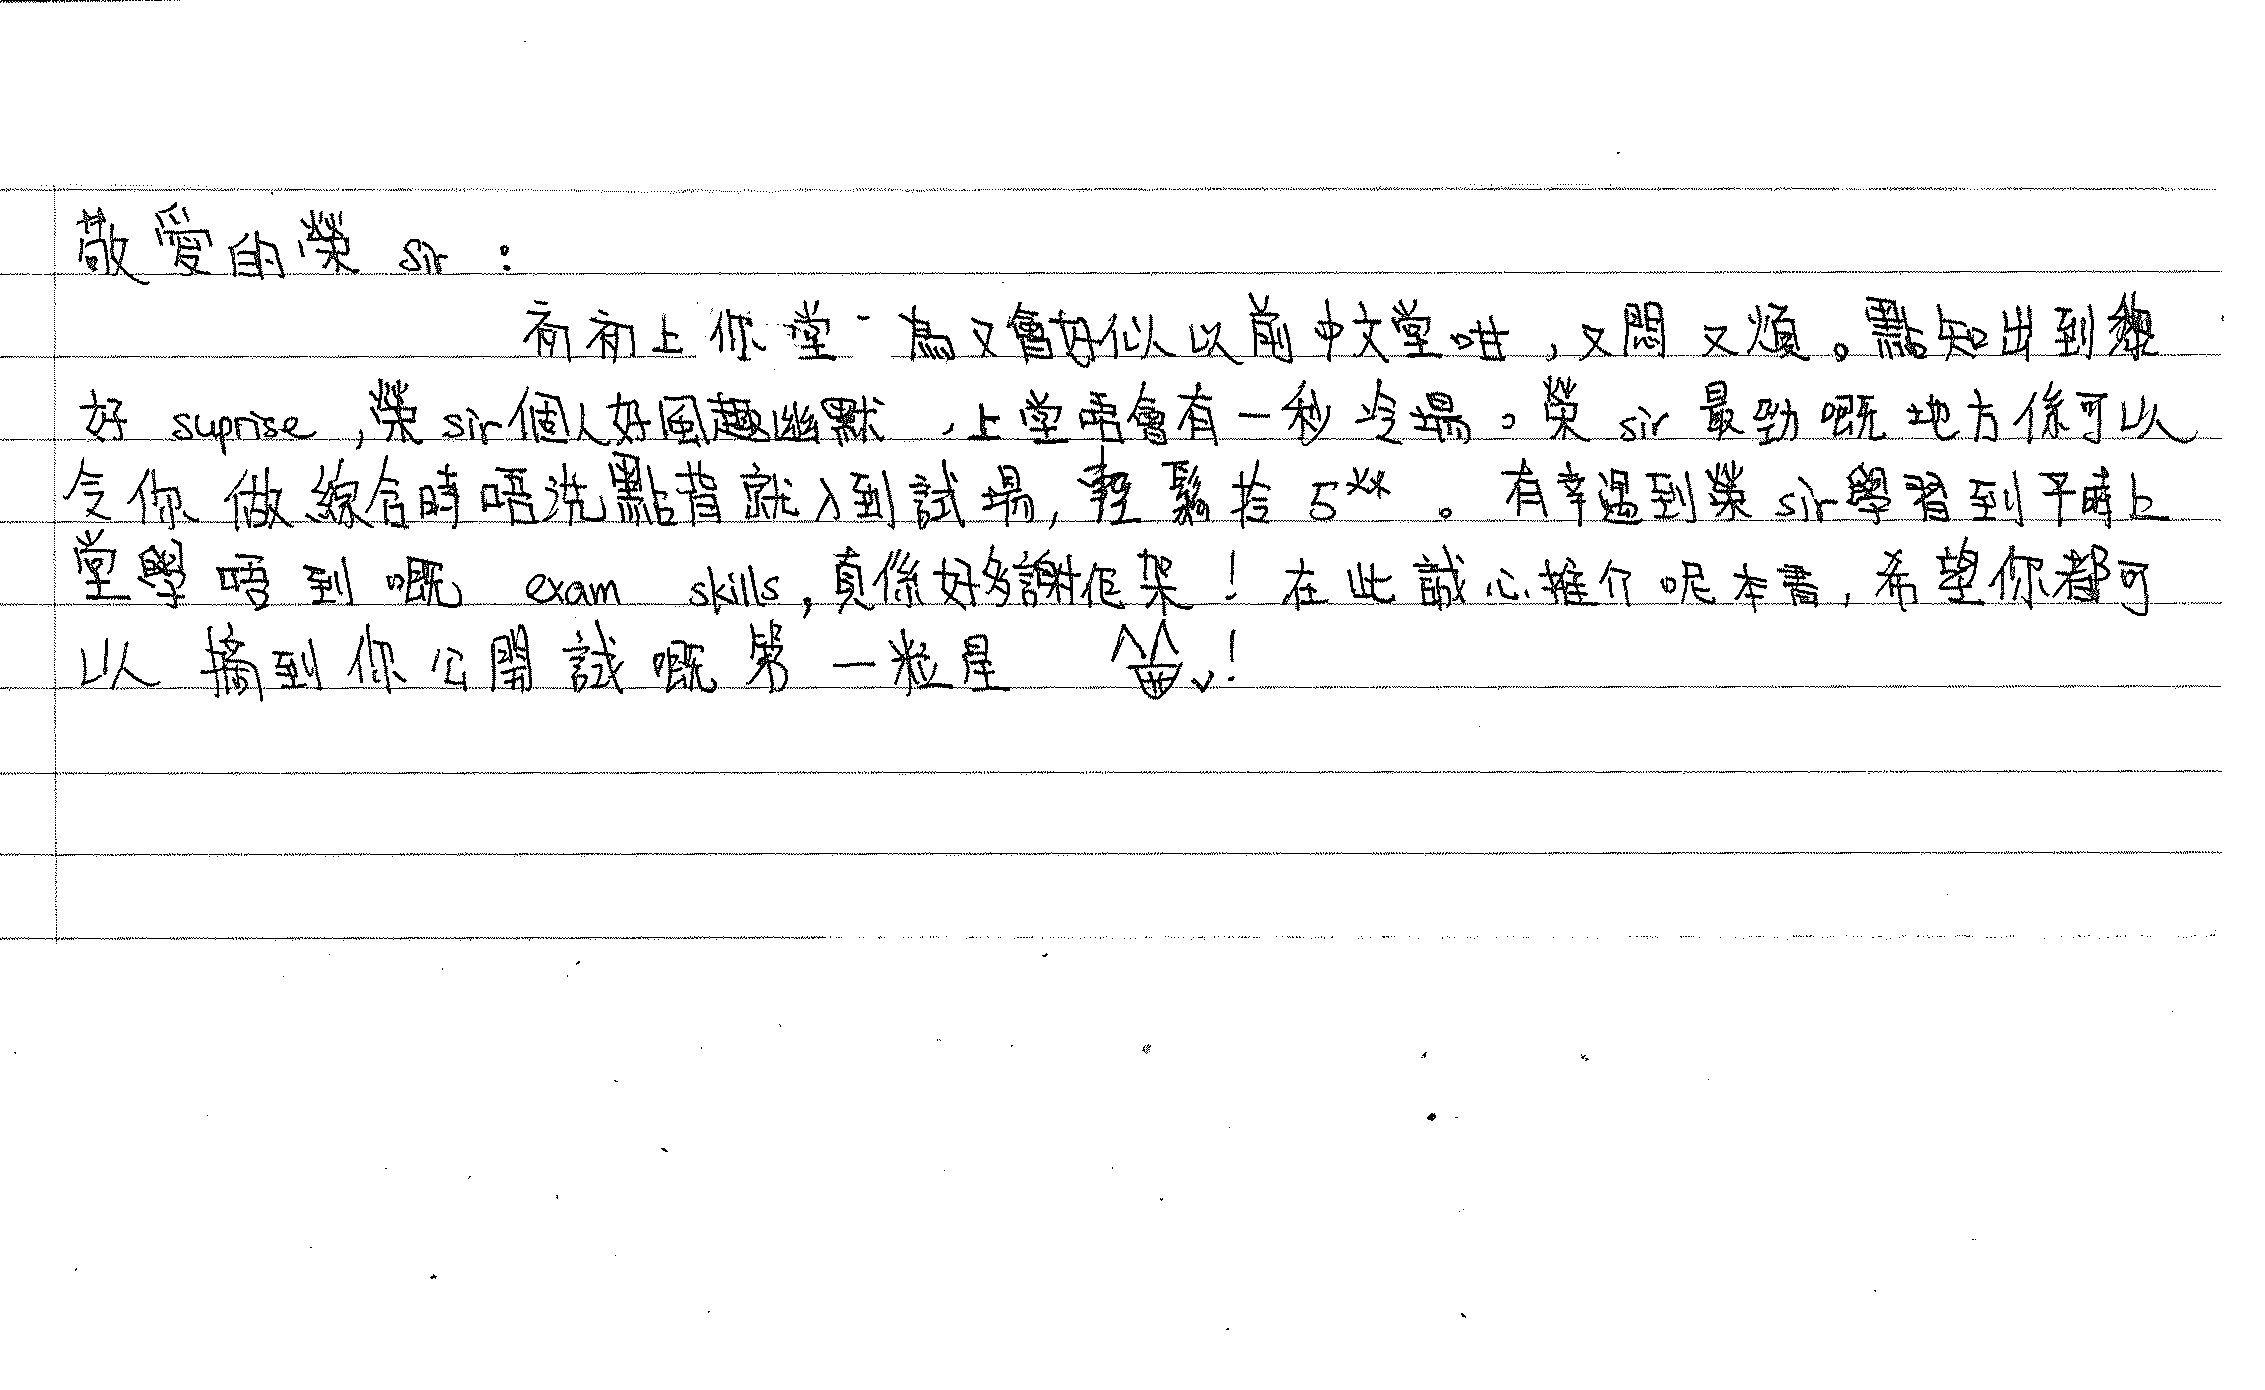 敬愛的榮 sir :
初初上你堂 為又會好似以前中文堂咁，又悶又煩。點知出到黎
好 suprise，榮 sir 個人好風趣幽默，上堂唔會有一秒冷場。榮 sir 最勁嘅地方係可以
令你做綜合時唔洗點背就入到試場，輕鬆拎 5**。有幸遇到榮 sir 學習到平時上
堂學唔到嘅 exam skills，真係好多謝佢架！在此誠心推介呢本書，希望你都可
以摘到你公開試嘅第一粒星 ！